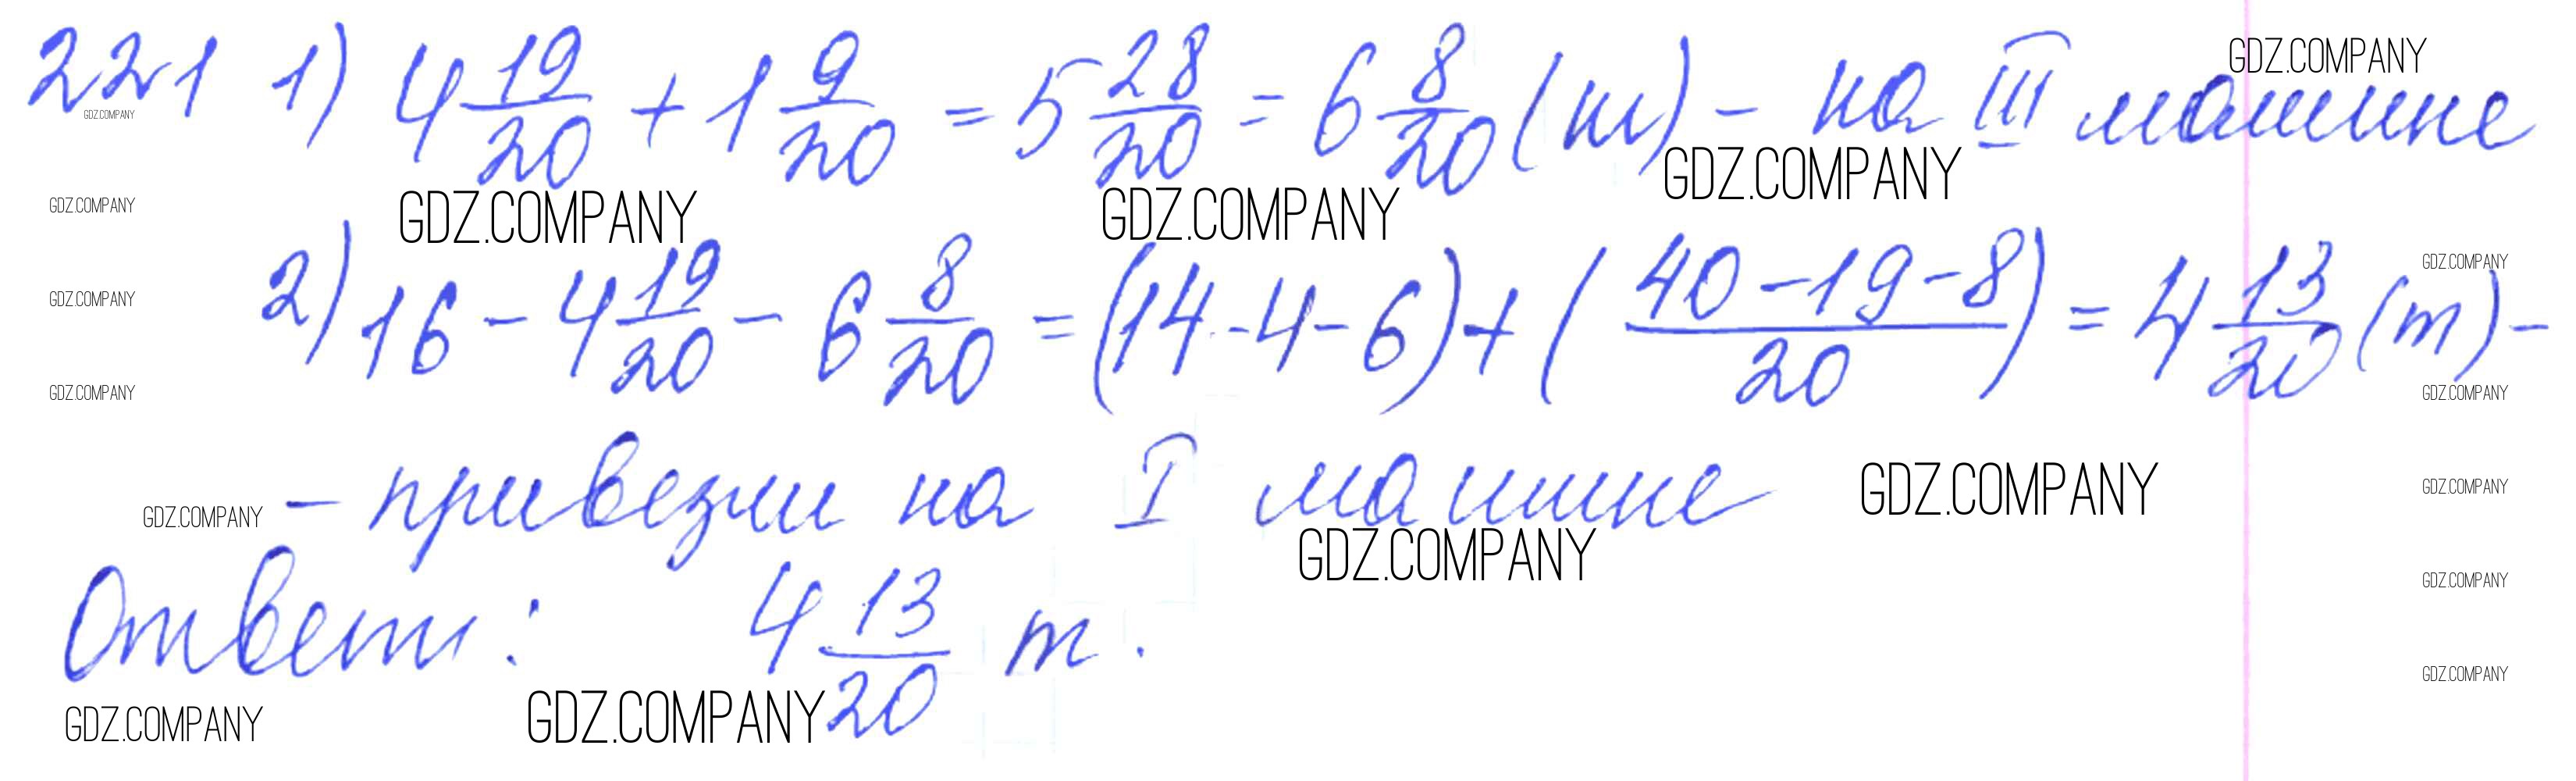 221 1) 4 19/20 + 1 9/20 = 5 28/20 = 6 8/20 (т) - на III машине
GDZ.COMPANY
GDZ.COMPANY
GDZ.COMPANY
GDZ.COMPANY GDZ.COMPANY GDZ.COMPANY
2) 16 - 4 19/20 - 6 8/20 = (14 - 4 - 6) + (40 - 19 - 8 / 20) = 4 13/20 (т) -
GDZ.COMPANY
GDZ.COMPANY
GDZ.COMPANY GDZ.COMPANY
- привезли на I машине
GDZ.COMPANY GDZ.COMPANY GDZ.COMPANY
GDZ.COMPANY
Ответ: 4 13/20 т.
GDZ.COMPANY
GDZ.COMPANY
GDZ.COMPANY GDZ.COMPANY